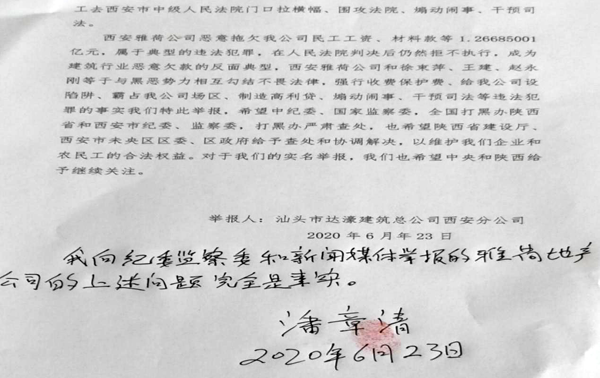 工去西安市中级人民法院门口拉横幅、围攻法院、煽动闹事、干预司
法。
西安雅荷公司恶意拖欠我公司民工工资、材料款等1.26685001
亿元，属于典型的违法犯罪，在人民法院判决后仍然拒不执行，成为
建筑行业恶意欠款的反面典型，西安雅荷公司和徐東萍、王建、赵永
刚等于与黑恶势力相互勾结不畏法律，强行收费保护费、给我公司设
陷阱、霸占我公司场区、制造高利贷、煽动闹事、干预司法等违法犯
罪的事实我们特此举报，希望中纪委、国家监察委，全国打黑办陕西
省和西安市纪委、监察委，打黑办严肃查处，也希望陕西省建设厅、
西安市未央区区委、区政府给予查处和协调解决，以维护我们企业和
农民工的合法权益。对于我们的实名举报，我们也希望中央和陕西给
予继续关注。
举报人：汕头市达濠建筑总公司西安分公司
2020年6月年23日
我向纪委监察委和新闻媒体举报的雅荷地产
公司的上述问题完全是事实。
潘章清
2020年6月23日